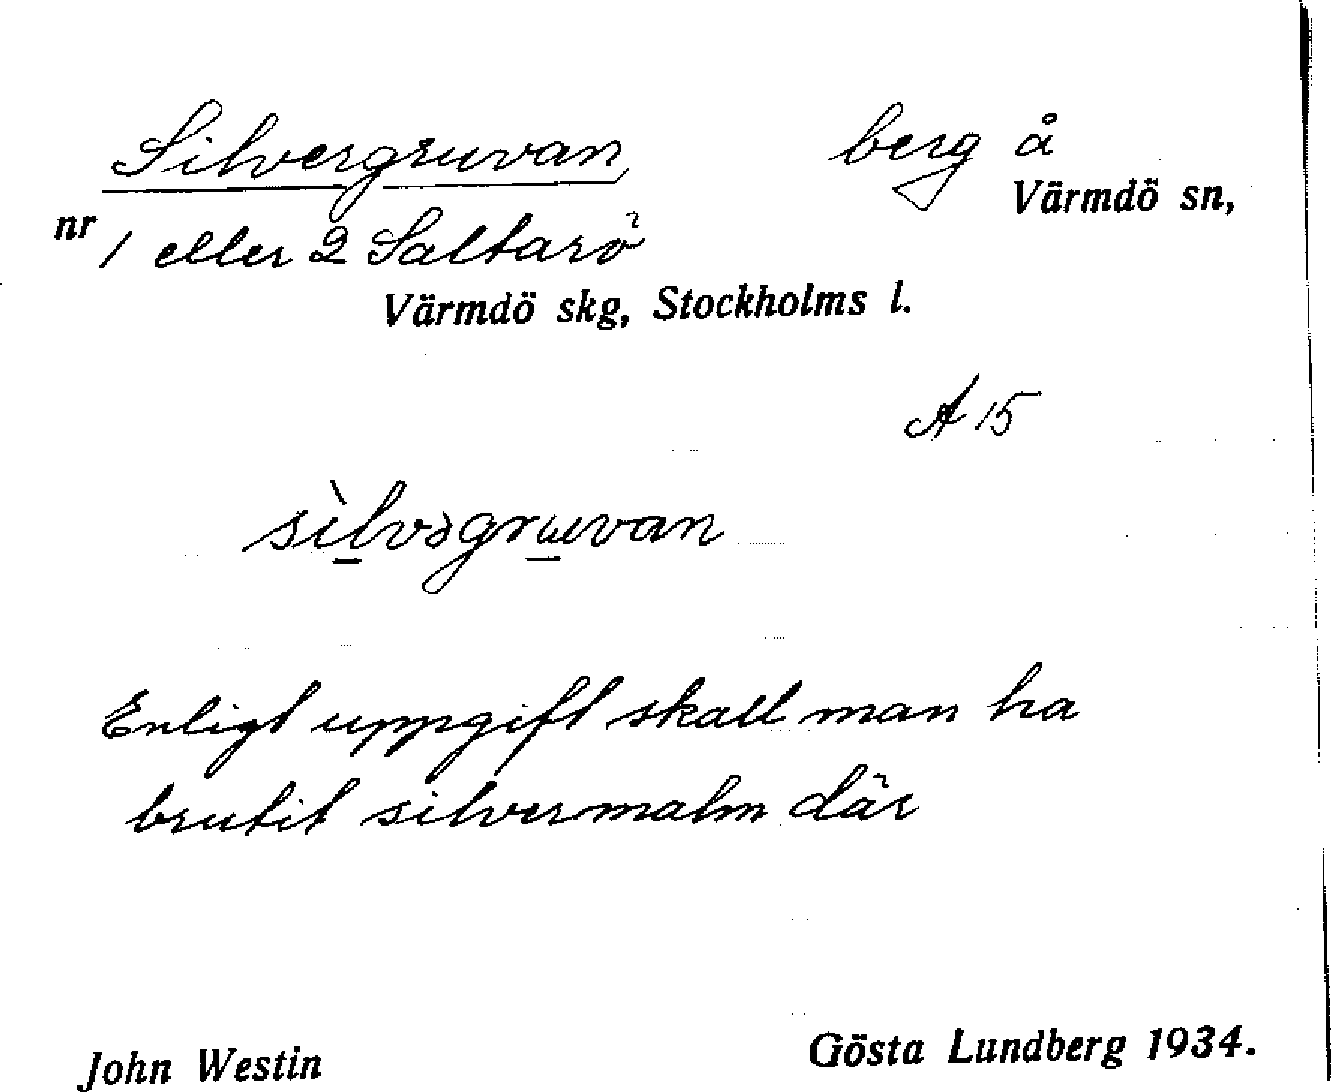 Silvergruvan berg å
Värmdö sn,
nr 1 eller 2 Saltarö
Värmdö skg, Stockholms l.
A 15
sìlvəgruvan
Enligt uppgift skall man ha
brutit silvermalm där
John Westin Gösta Lundberg 1934.